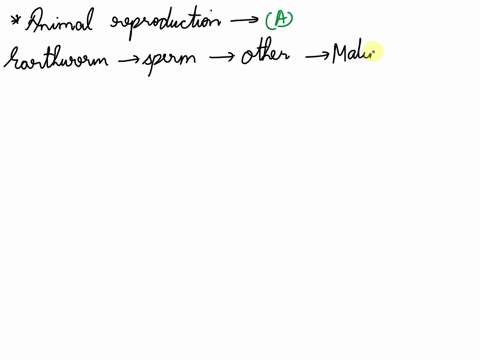 * Animal reproduction → (A)
Earthworm → sperm → other → Mati